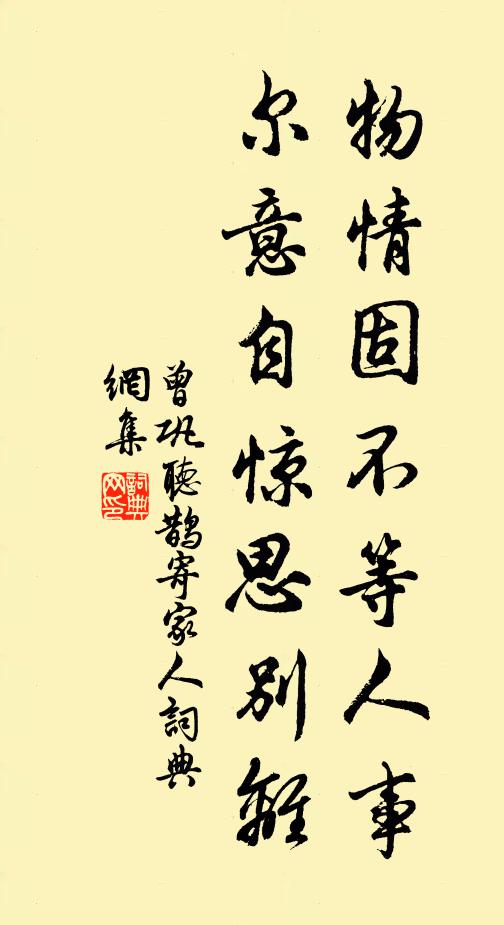 物情固不等人事
尔意自惊思别離
曾巩聽鹊寄家人詞典
網集
詞典
网印